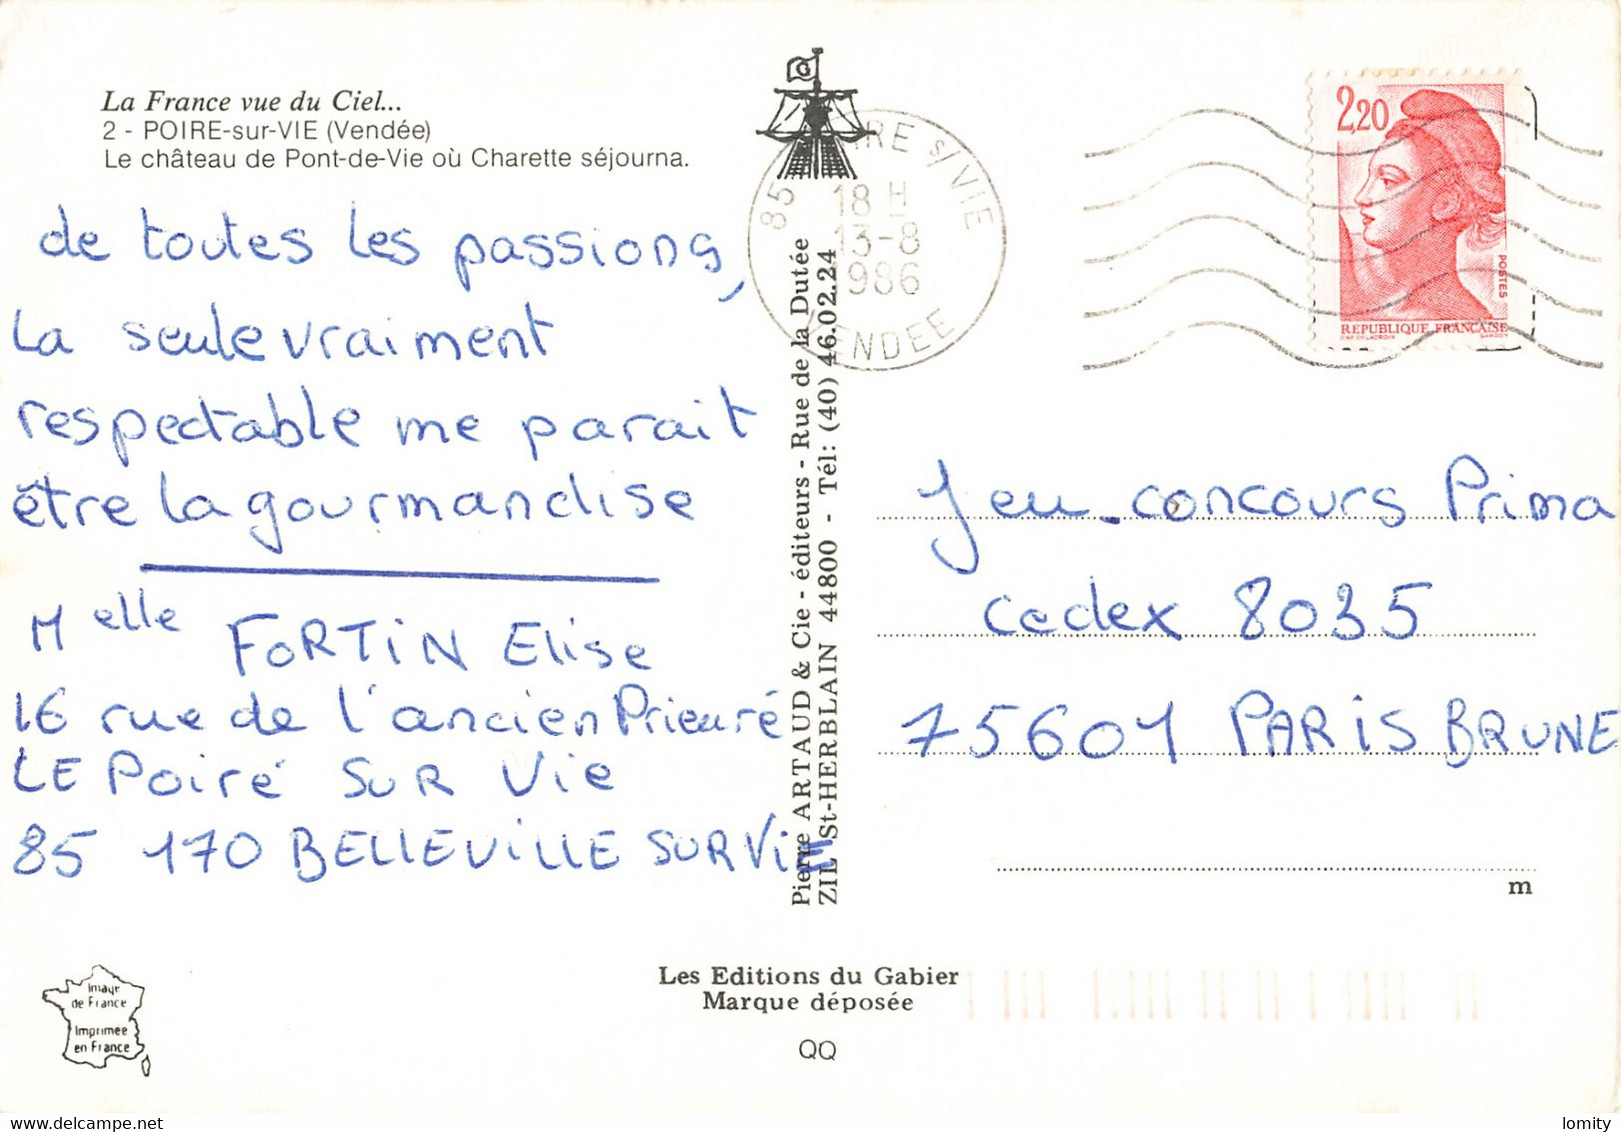 La France vue du Ciel...
2 - POIRE-sur-VIE (Vendée)
Le château de Pont-de-Vie où Charette séjourna.
de toutes les passions,
la seule vraiment
respectable me parait
être la gourmandise
Melle FORTIN Elise
16 rue de l'ancien Prieuré
LE Poiré SUR Vie
85 170 BELLEVILLE SUR VIE
Pierre ARTAUD & Cie - éditeurs - Rue de la Dutée
ZIL St-HERBLAIN 44800 - Tél: (40) 46.02.24
85
IRE s/VIE
18 H
13-8
1986
VENDEE
2,20
POSTES
REPUBLIQUE FRANÇAISE
Jeu-concours Prima
cedex 8035
75601 PARIS BRUNE
m
Image
de France
Imprimée
en France
Les Editions du Gabier
Marque déposée
QQ
delcampe.net
lomity